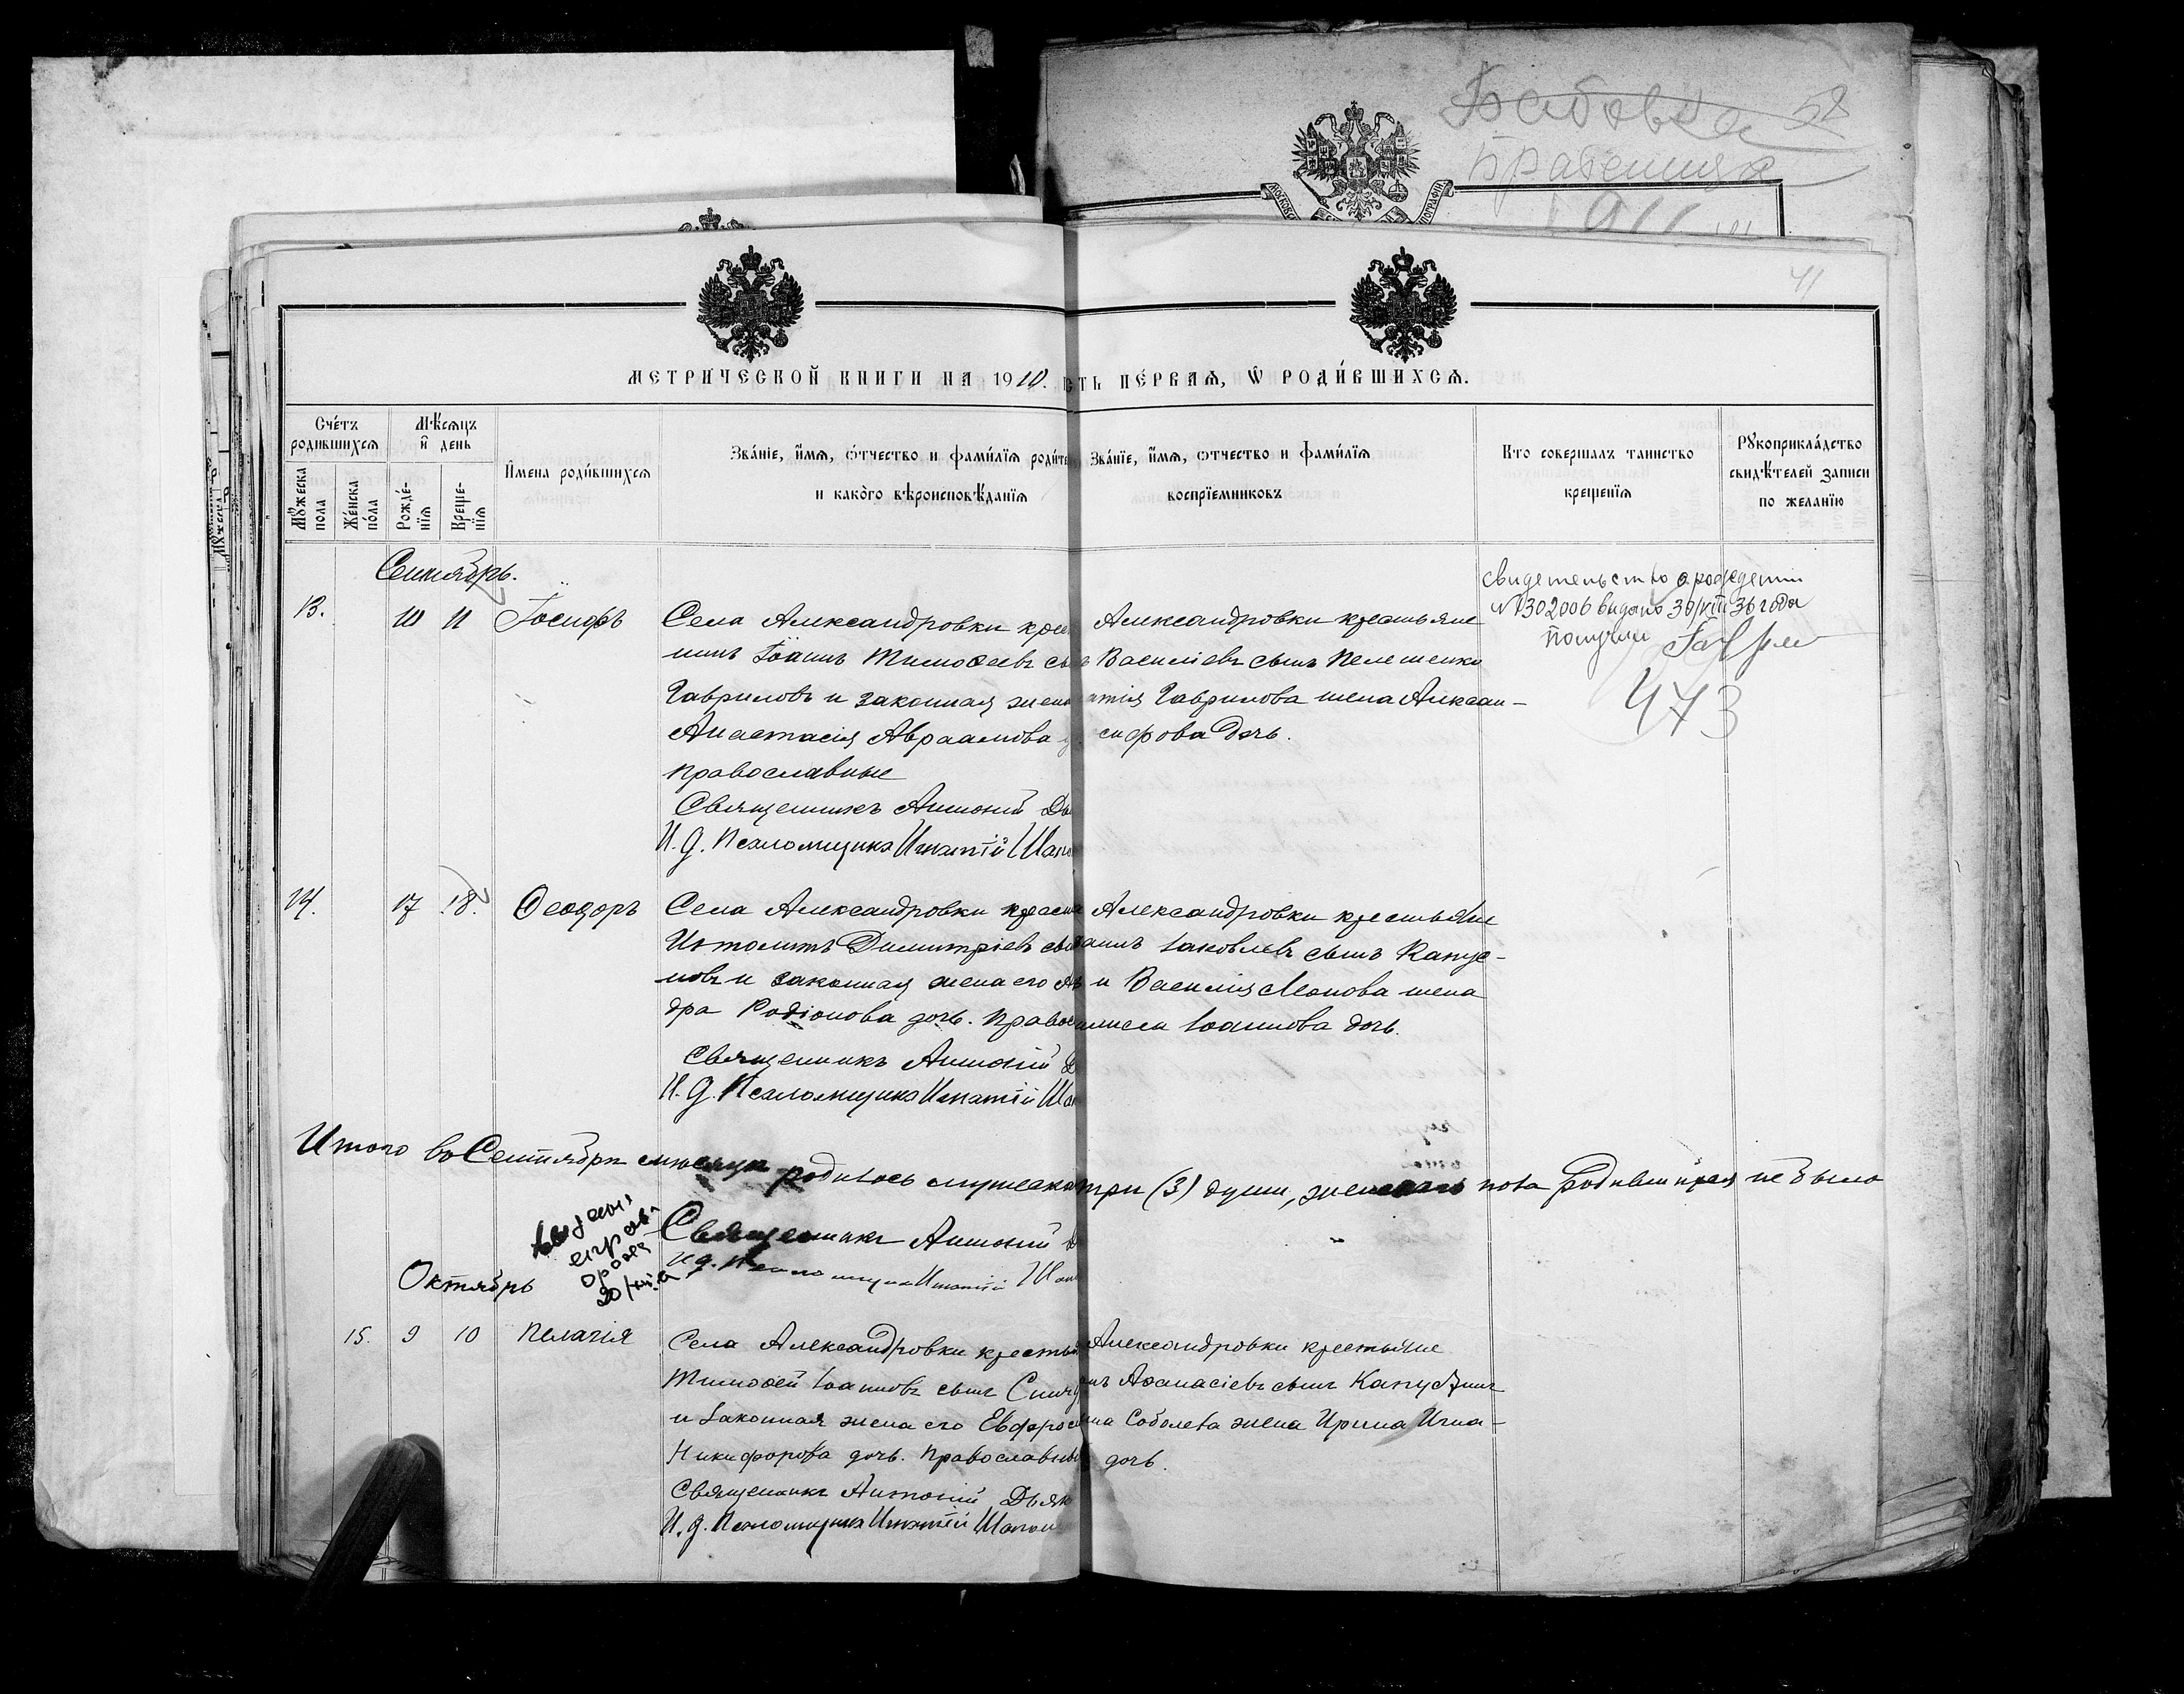 Бабовка 52
1911
41
МЕТРИЧЕСКОЙ КНИГИ НА 1910.
СТЬ ПЕ́РВАѦ, Ѡ РОДИ́ВШИХСѦ.
Сче́тъ родившихсѧ
Мѣ́сѧцъ и день
И́мена роди́вшихсѧ
Зва́нїе, и́мѧ, о́тчество и фами́лїѧ роди́те
и како́го вѣроисповѣ́данїѧ
Мꙋ́жеска пола
Же́нска по́ла
Рожде́-нїѧ
Креще-нїѧ
Зва́нїе, и́мѧ, о́тчество и фами́лїѧ
воспрїемниковъ
Кто совершалъ таинство
крещенїѧ
Рꙋкоприкла́дство
свидѣ́телей записи
по желанїю
Сентябрь.
13. 10 11 Іосифъ
Села Александровки крес
нинъ Іоаннъ Тимоѳеевъ сы
Гавриловъ и законная жена
Анастасія Авраамова
православные
Священникъ Антоній Дь
И. д. Псаломщика Игнатій Шапо
Александровки крестьяне
Василіевъ сынъ Пелешенко
Гаврилова жена Алексан-
сифова дочь.
свидетельство о рождении
№ 302006 видано 30/VIII 36 года
получил
473
14. 17 18. Ѳеодоръ
Села Александровки крестья
Ипполитъ Димитріевъ сы
новъ и законная жена его
дра Родіонова дочь. Правос
Священникъ Антоній Д
И. д. Псаломщика Игнатій Шап
Александровки крестьяне
Іаковлевъ сынъ Капус-
и Василія Леонова жена
Іоаннова дочь.
Итого въ Сентябрѣ мѣсяцѣ родилось мужеска три (3) души, женскаго пола родившихся не было
Священникъ Антоній
И. д. Псаломщика Игнатій Шап
Октябрь
15. 9 10 Пелагія
Села Александровки крестья
Тимоѳей Іоанновъ сынъ
и законная жена его Евфрос
Никифорова дочь. Православны
Священникъ Антоній Дьяк
И. д. Псаломщика Игнатій Шапов
Александровки крестьяне
Аѳанасіевъ сынъ Капустинъ
Соболева жена Ирина Игна-
дочь.